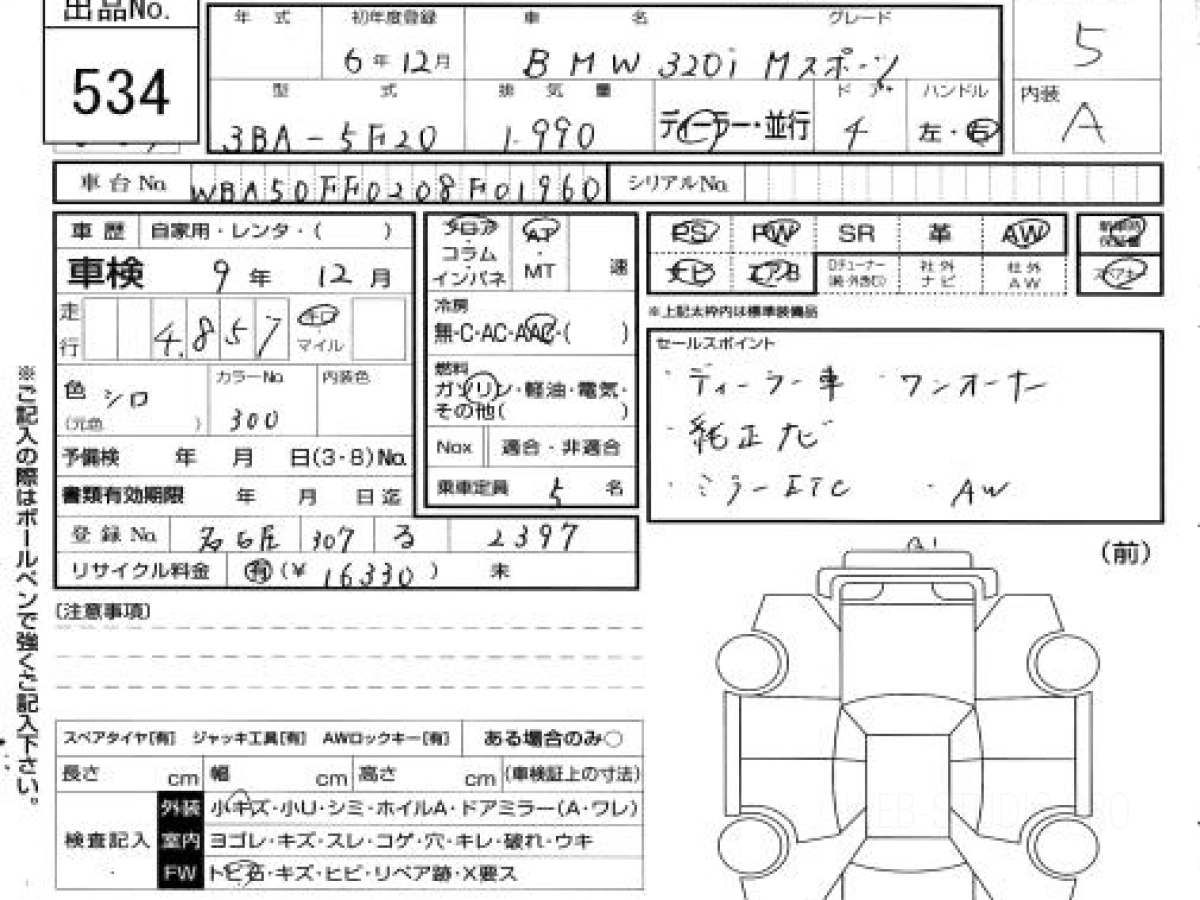 出品No.
534
年 式 初年度登録 車 名 グレード
6年12月 BMW 320i Mスポーツ
5
型 式 排 気 量 ドア ハンドル 内装
3BA-5F20 1.990 ディーラー・並行 4 左・右 A
車台No. WBA50FF0208F01960 シリアルNo.
車歴 自家用・レンタ・( )
車検 9年 12月
走行 4.857 キロ マイル
色 シロ カラーNo. 300 内装色
(元色 )
予備検 年 月 日(3・8)No.
書類有効期限 年 月 日迄
登録No. 名古屋 307 る 2397
リサイクル料金 有(¥ 16330 ) 未
フロア コラム インパネ AT・MT 速
冷房
無・C・AC・AAC・( )
燃料
ガソリン・軽油・電気・
その他( )
Nox 適合・非適合
乗車定員 5 名
PS PW SR 革 AW
ナビ エアB 社外ナビ 社外AW スペアキー
※上記太枠内は標準装備品
セールスポイント
・ディーラー車 ・ワンオーナー
・純正ナビ
・ミラーETC ・AW
(前)
(注意事項)
スペアタイヤ[有] ジャッキ工具[有] AWロックキー[有] ある場合のみ○
長さ cm 幅 cm 高さ cm (車検証上の寸法)
検査記入
外装 小キズ・小U・シミ・ホイルA・ドアミラー(A・ワレ)
室内 ヨゴレ・キズ・スレ・コゲ・穴・キレ・破れ・ウキ
FW トビ石・キズ・ヒビ・リペア跡・X要ス
※ご記入の際はボールペンで強くご記入下さい。